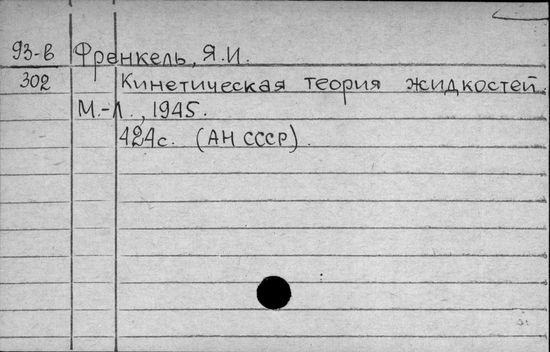 93-в Френкель, Я.И.
302 Кинетическая теория жидкостей.
М.-Л., 1945.
424с. (АН СССР).